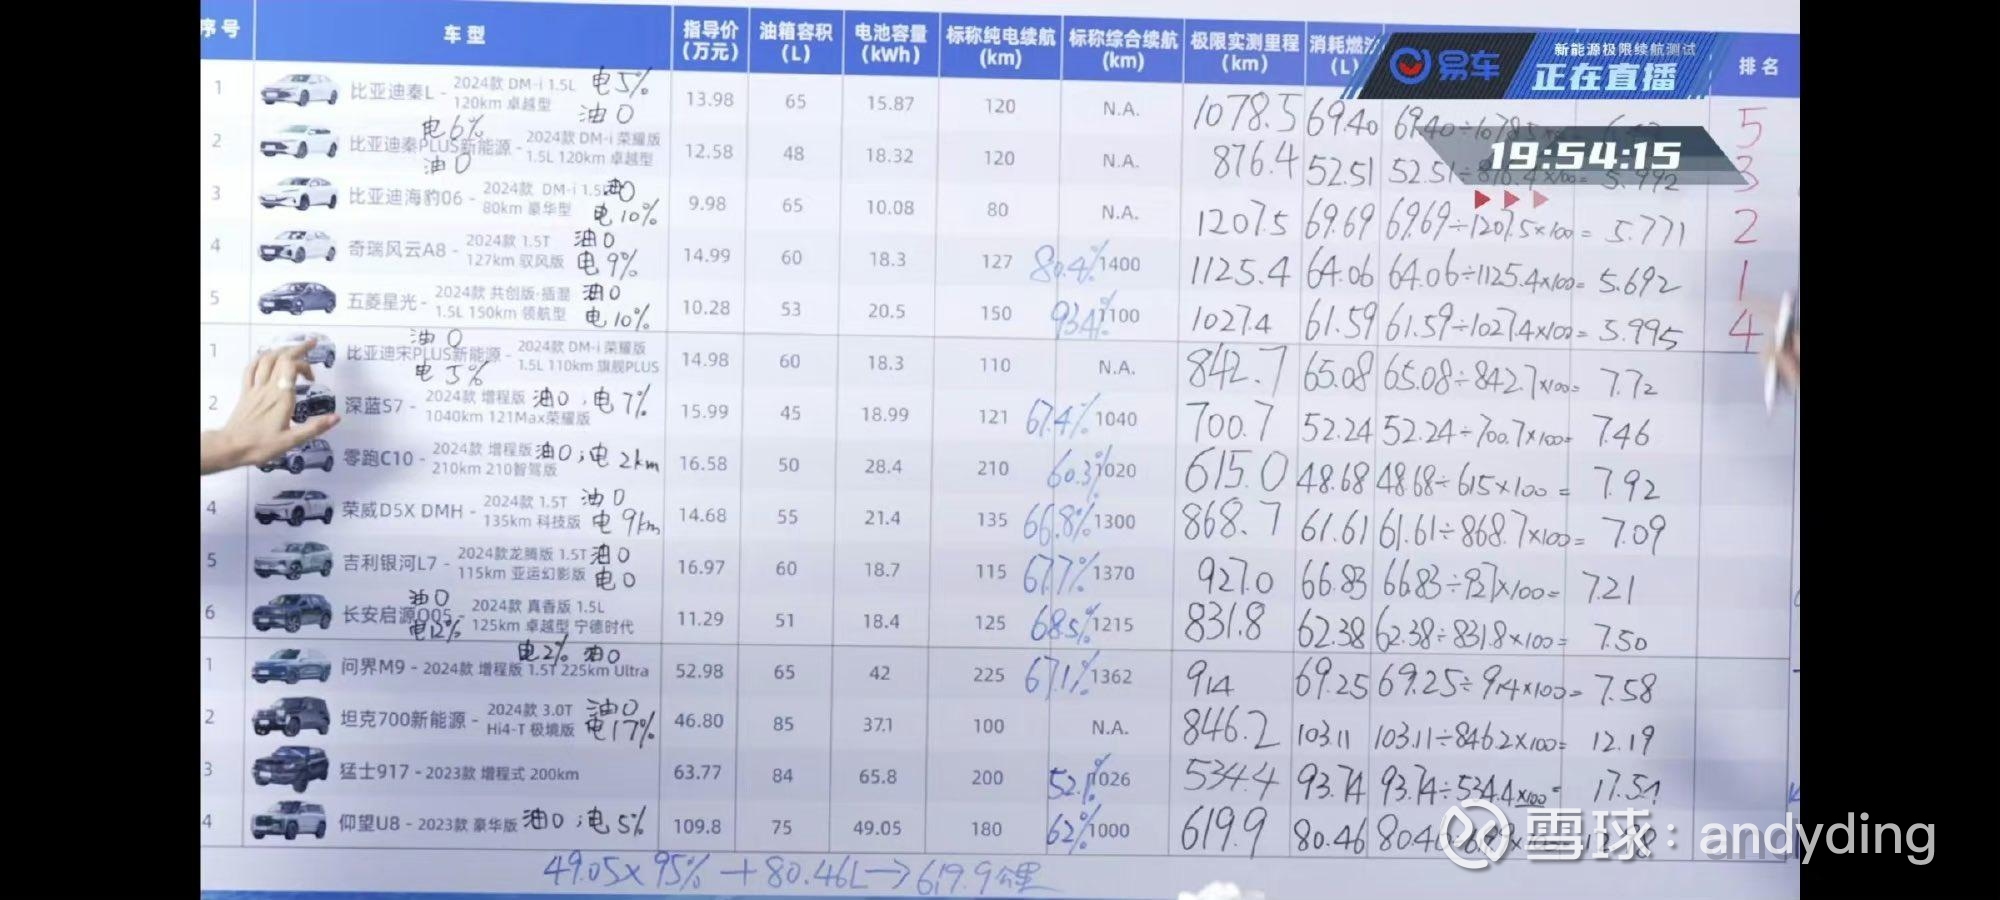 序号 车型 指导价(万元) 油箱容积(L) 电池容量(kWh) 标称纯电续航(km) 标称综合续航(km) 极限实测里程(km) 消耗燃油(L) 排名
易车 新能源极限续航测试
正在直播
19:54:15
1 比亚迪秦L - 2024款 DM-i 1.5L 120km 卓越型 电5% 油0 13.98 65 15.87 120 N.A. 1078.5 69.40 69.40÷1078.5 5
2 比亚迪秦PLUS新能源 - 2024款 DM-i 荣耀版 1.5L 120km 卓越型 电6% 油0 12.58 48 18.32 120 N.A. 876.4 52.51 52.51÷876.4×100= 5.992 3
3 比亚迪海豹06 - 2024款 DM-i 1.5L 80km 豪华型 油0 电10% 9.98 65 10.08 80 N.A. 1207.5 69.69 69.69÷1207.5×100= 5.771 2
4 奇瑞风云A8 - 2024款 1.5T 127km 驭风版 油0 电9% 14.99 60 18.3 127 80.4% 1400 1125.4 64.06 64.06÷1125.4×100= 5.692 1
5 五菱星光 - 2024款 共创版·插混 1.5L 150km 领航型 油0 电10% 10.28 53 20.5 150 93.4% 1100 1027.4 61.59 61.59÷1027.4×100= 5.995 4
1 比亚迪宋PLUS新能源 - 2024款 DM-i 荣耀版 1.5L 110km 旗舰PLUS 油0 电5% 14.98 60 18.3 110 N.A. 842.7 65.08 65.08÷842.7×100= 7.72
2 深蓝S7 - 2024款 增程版 1040km 121Max荣耀版 油0,电7% 15.99 45 18.99 121 67.4% 1040 700.7 52.24 52.24÷700.7×100= 7.46
零跑C10 - 2024款 增程版 210km 210智驾版 油0;电2km 16.58 50 28.4 210 60.3% 1020 615.0 48.68 48.68÷615×100= 7.92
4 荣威D5X DMH - 2024款 1.5T 135km 科技版 油0 电9km 14.68 55 21.4 135 66.8% 1300 868.7 61.61 61.61÷868.7×100= 7.09
5 吉利银河L7 - 2024款龙腾版 1.5T 115km 亚运幻影版 油0 电0 16.97 60 18.7 115 67.7% 1370 927.0 66.83 66.83÷927×100= 7.21
6 长安启源Q05 - 2024款 真香版 1.5L 125km 卓越型 宁德时代 油0 电12% 11.29 51 18.4 125 68.5% 1215 831.8 62.38 62.38÷831.8×100= 7.50
1 问界M9 - 2024款 增程版 1.5T 225km Ultra 电2% 油0 52.98 65 42 225 67.1% 1362 914 69.25 69.25÷914×100= 7.58
2 坦克700新能源 - 2024款 3.0T Hi4-T 极境版 油0 电17% 46.80 85 37.1 100 N.A. 846.2 103.11 103.11÷846.2×100= 12.19
3 猛士917 - 2023款 增程式 200km 63.77 84 65.8 200 52.1% 1026 534.4 93.74 93.74÷534.4×100= 17.54
4 仰望U8 - 2023款 豪华版 油0;电5% 109.8 75 49.05 180 62% 1000 619.9 80.46
49.05×95%+80.46L→619.9公里
雪球:andyding